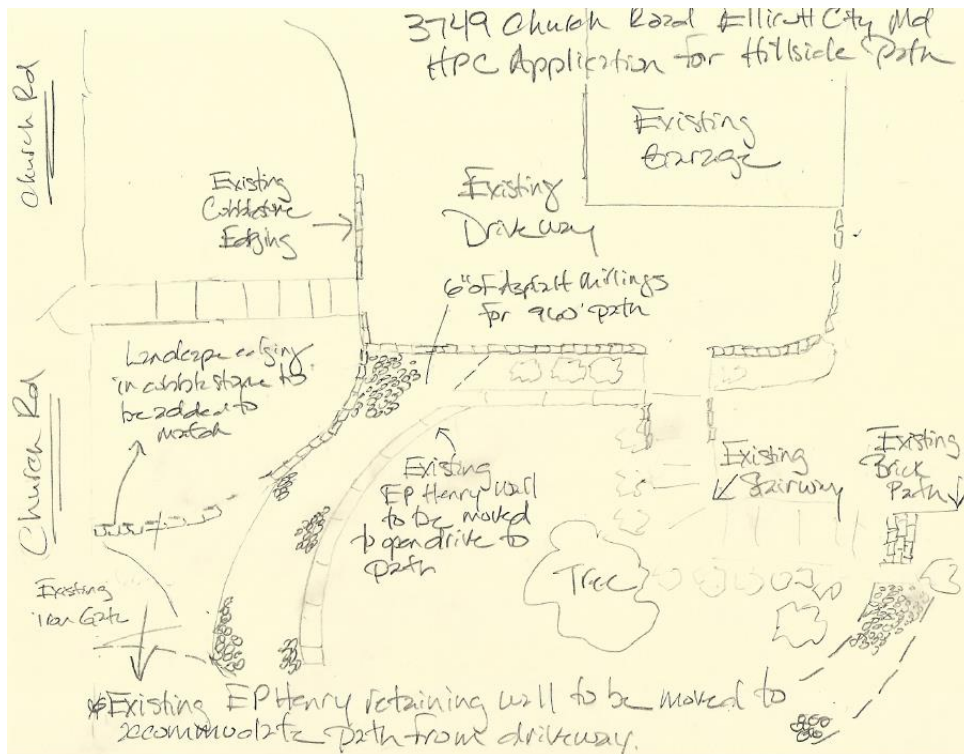 3749 Church Road Ellicott City Md
HPC Application for Hillside Path
Church Rd
Existing
Garage
Existing
Cobblestone
Edging
Existing
Driveway
6" of Asphalt millings
for 960' path
Landscape edging
in cobblestone to
be added to
match
Church Rd
Existing
EP Henry wall
to be moved
to open drive to
path
Existing
Stairway
Existing
Brick
Path
Existing
iron Gate
Tree
*Existing EP Henry retaining wall to be moved to
accommodate path from driveway.